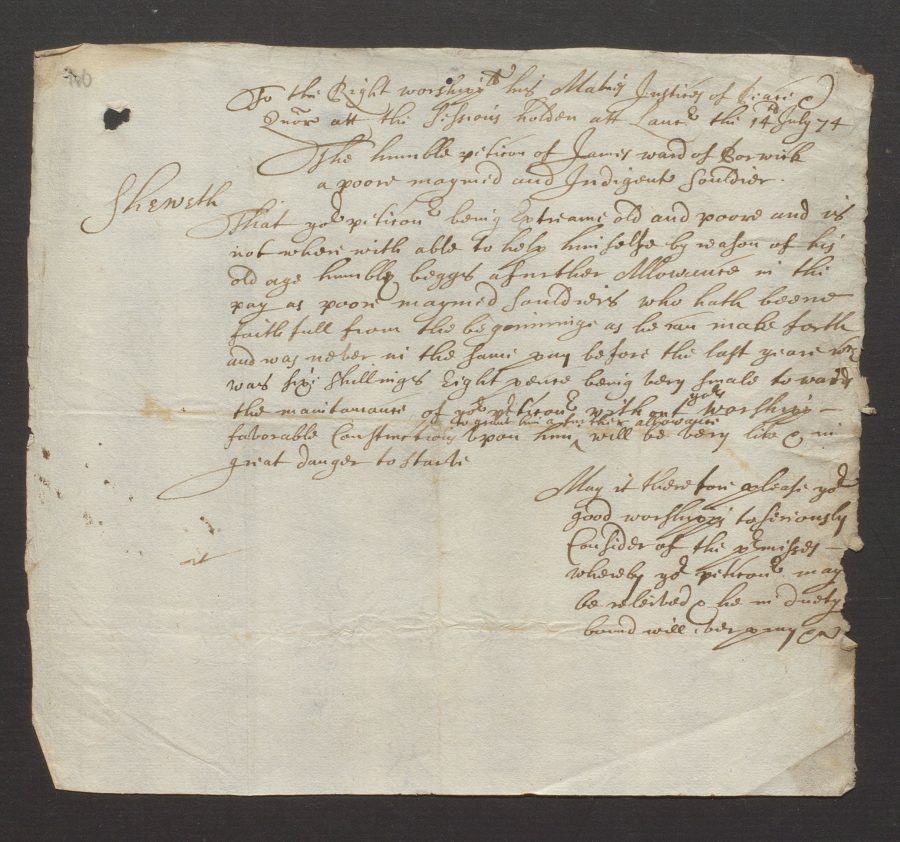 To the Right worshipll his Maties Justices of Peace &
Quor att the Sessions holden att Lancr the 14th July 74
The humble peticon of James ward of Borwick
a poore maymed and Indigente Souldier.
Sheweth
That yor peticonr being Extreame old and poore and is
not where with able to help himselfe by reason of his
old age humbly beggs a further Allowance in the
pay as poore maymed Souldiers who hath beene
faithfull from the beginninge as he can make forth
and was never in the same pay before the last yeare wch
was six Shillings Eight pence being very smale towards
the maintanance of yor peticonr without yor worships
favorable Construction upon him to grant him a further allowance will be very like & in
great danger to starve
May it therefore please yor
good worships to seriously
Consider of the prmisses
whereby yor peticonr may
be releived & he in duety
bound will ever pray &c